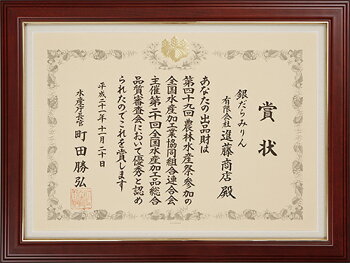 賞状
銀だらみりん
有限会社 遠藤商店 殿
あなたの出品財は
第四十九回農林水産祭参加の
全国水産加工業協同組合連合会
主催第二十一回全国水産加工品総合
品質審査会において優秀と認め
られたのでこれを賞します
平成二十二年十一月二十日
水産庁長官 町田勝弘